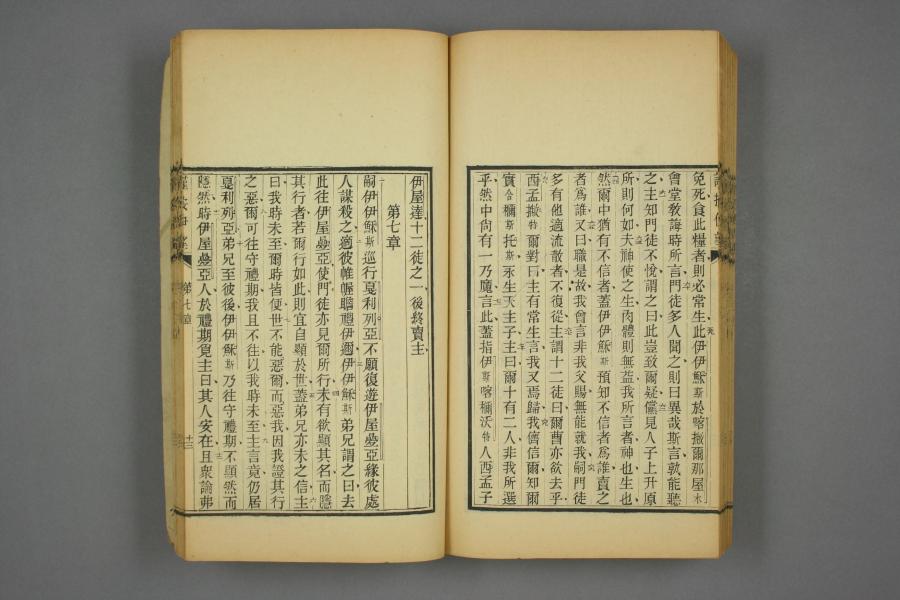 免死食此糧者則必常生此伊伊穌斯於喀撇爾那屋木
會堂教誨時所言門徒多人聞之則曰異哉斯言孰能聽
之主知門徒不悅謂之曰此豈致爾疑儻見人子上升原
所則何如夫神使之生肉體則無益我所言者神也生也
然爾中猶有不信者蓋伊伊穌斯預知不信者爲誰賣之
者爲誰又曰職是故我曾言非我父賜無能就我嗣門徒
多有他適流散者不復從主謂十二徒曰爾曹亦欲去乎
西孟撇特爾對曰主有常生言我又焉歸我儕信爾知爾
實合穪斯托斯永生天主子主曰爾十有二人非我所選
乎然中尙有一乃魔言此蓋指伊斯喀穪沃特人西孟子
伊屋達十二徒之一後終賣主
第七章
嗣伊伊穌斯巡行戛利列亞不願復遊伊屋疊亞緣彼處
人謀殺之適彼帷幄瞻禮伊邇伊伊穌斯弟兄謂之曰去
此往伊屋疊亞使門徒亦見爾所行未有欲顯其名而隱
其行者若爾行如此則宜自顯於世蓋弟兄亦未之信主
曰我時未至爾時皆便世不能惡爾而惡我因我證其行
之惡爾可往守禮期我且不往以我時未至主言竟仍居
戛利列亞弟兄至彼後伊伊穌斯乃往守禮期不顯然而
隱然時伊屋疊亞人於禮期覓主曰其人安在且衆論弗
第七章